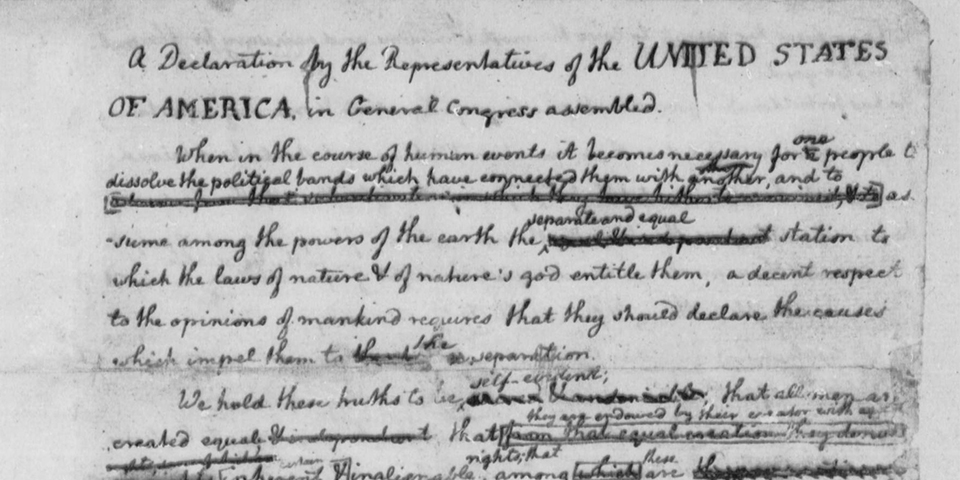 A Declaration by the Representatives of the UNITED STATES
OF AMERICA, in General Congress assembled.
one
When in the course of human events it becomes necessary for a people to
dissolve the political bands which have connected them with another, and to
as
separate and equal
-sume among the powers of the earth the equal & independant station to
which the laws of nature & of nature's god entitle them, a decent respect
to the opinions of mankind requires that they should declare the causes
the
which impel them to the separation.
self-evident;
We hold these truths to be that all men are
they are endowed by their creator with
created equal & independant that from that equal creation they
rights; that
these
certain
inherent & inalienable among which are